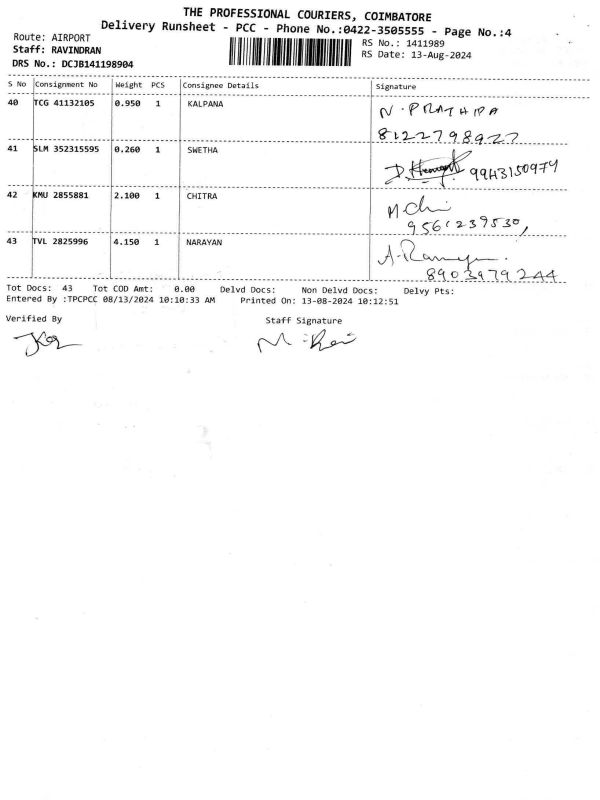 THE PROFESSIONAL COURIERS, COIMBATORE
Delivery Runsheet - PCC - Phone No.:0422-3505555 - Page No.:4
Route: AIRPORT
Staff: RAVINDRAN
DRS No.: DCJB141198904
RS No.: 1411989
RS Date: 13-Aug-2024
S No Consignment No Weight PCS Consignee Details Signature
40 TCG 41132105 0.950 1 KALPANA N. PRATHIBA
8122798927
41 SLM 352315595 0.260 1 SWETHA 9943150974
42 KMU 2855881 2.100 1 CHITRA
9561239530,
43 TVL 2825996 4.150 1 NARAYAN
8903979244
Tot Docs: 43 Tot COD Amt: 0.00 Delvd Docs: Non Delvd Docs: Delvy Pts:
Entered By :TPCPCC 08/13/2024 10:10:33 AM Printed On: 13-08-2024 10:12:51
Verified By Staff Signature